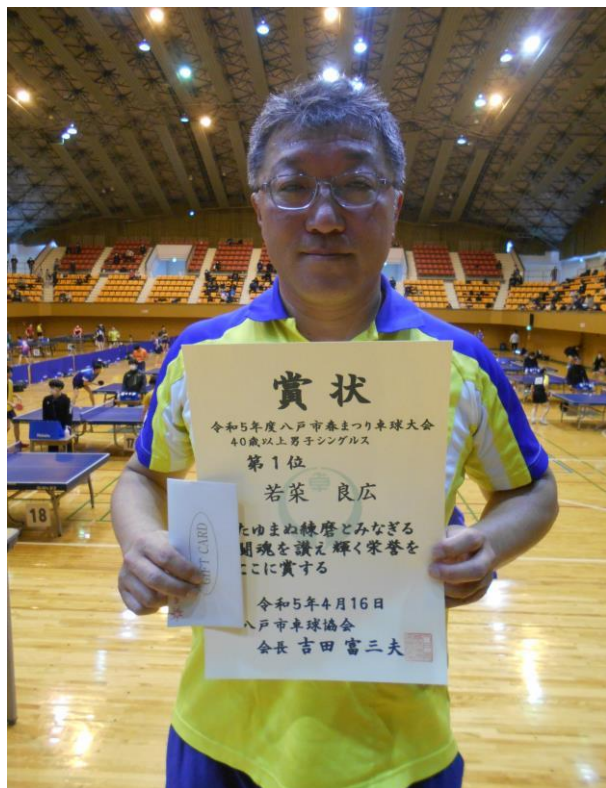 賞状
令和5年度八戸市春まつり卓球大会
40歳以上男子シングルス
第1位
若菜 良広
たゆまぬ練磨とみなぎる
闘魂を讃え輝く栄誉を
ここに賞する
令和5年4月16日
八戸市卓球協会
会長 吉田 富三夫
GIFT CARD
18